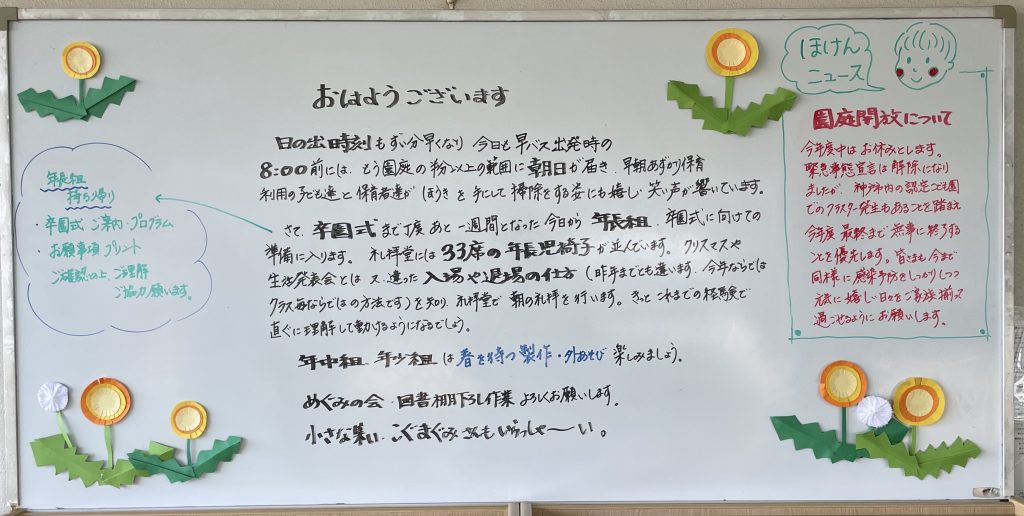 おはようございます
日の出時刻もずい分早くなり 今日も早バス出発時の
8:00前には、もう園庭の半分以上の範囲に朝日が届き、早朝あずかり保育
利用の子ども達と保育者達が ほうきを手にして掃除をする姿にも嬉しい笑い声が響いています。
さて、卒園式まで丁度あと一週間となった今日から 年長組、卒園式に向けての
準備に入ります。 礼拝堂には33席の年長児椅子が並んでいます。クリスマスや
生活発表会とは 又、違った入場や退場の仕方(昨年までとも違います、今年ならでは
クラス毎ならではの方法です)を知り、礼拝堂で 朝の礼拝を行います。きっとこれまでの経験で
直ぐに理解して動けるようになるでしょう。
年中組、年少組は春を待つ製作・外あそび 楽しみましょう。
めぐみの会・図書棚下ろし作業 よろしくお願いします。
小さな集い、こぐまぐみさんもいらっしゃ〜い。
年長組
持ち帰り
・卒園式 ご案内・プログラム
・お願い事項プリント
ご確認の上、ご理解
ご協力願います。
ほけん
ニュース
園庭開放について
今年度中はお休みとします。
緊急事態宣言は解除になり
ましたが、神戸市内の認定こども園
でのクラスター発生もあることを踏まえ
今年度 最終まで無事に終了する
ことを優先します。皆さまも今まで
同様に感染予防をしっかりしつつ
元気に嬉しい日々をご家族揃って
過ごせるようにお願いします。